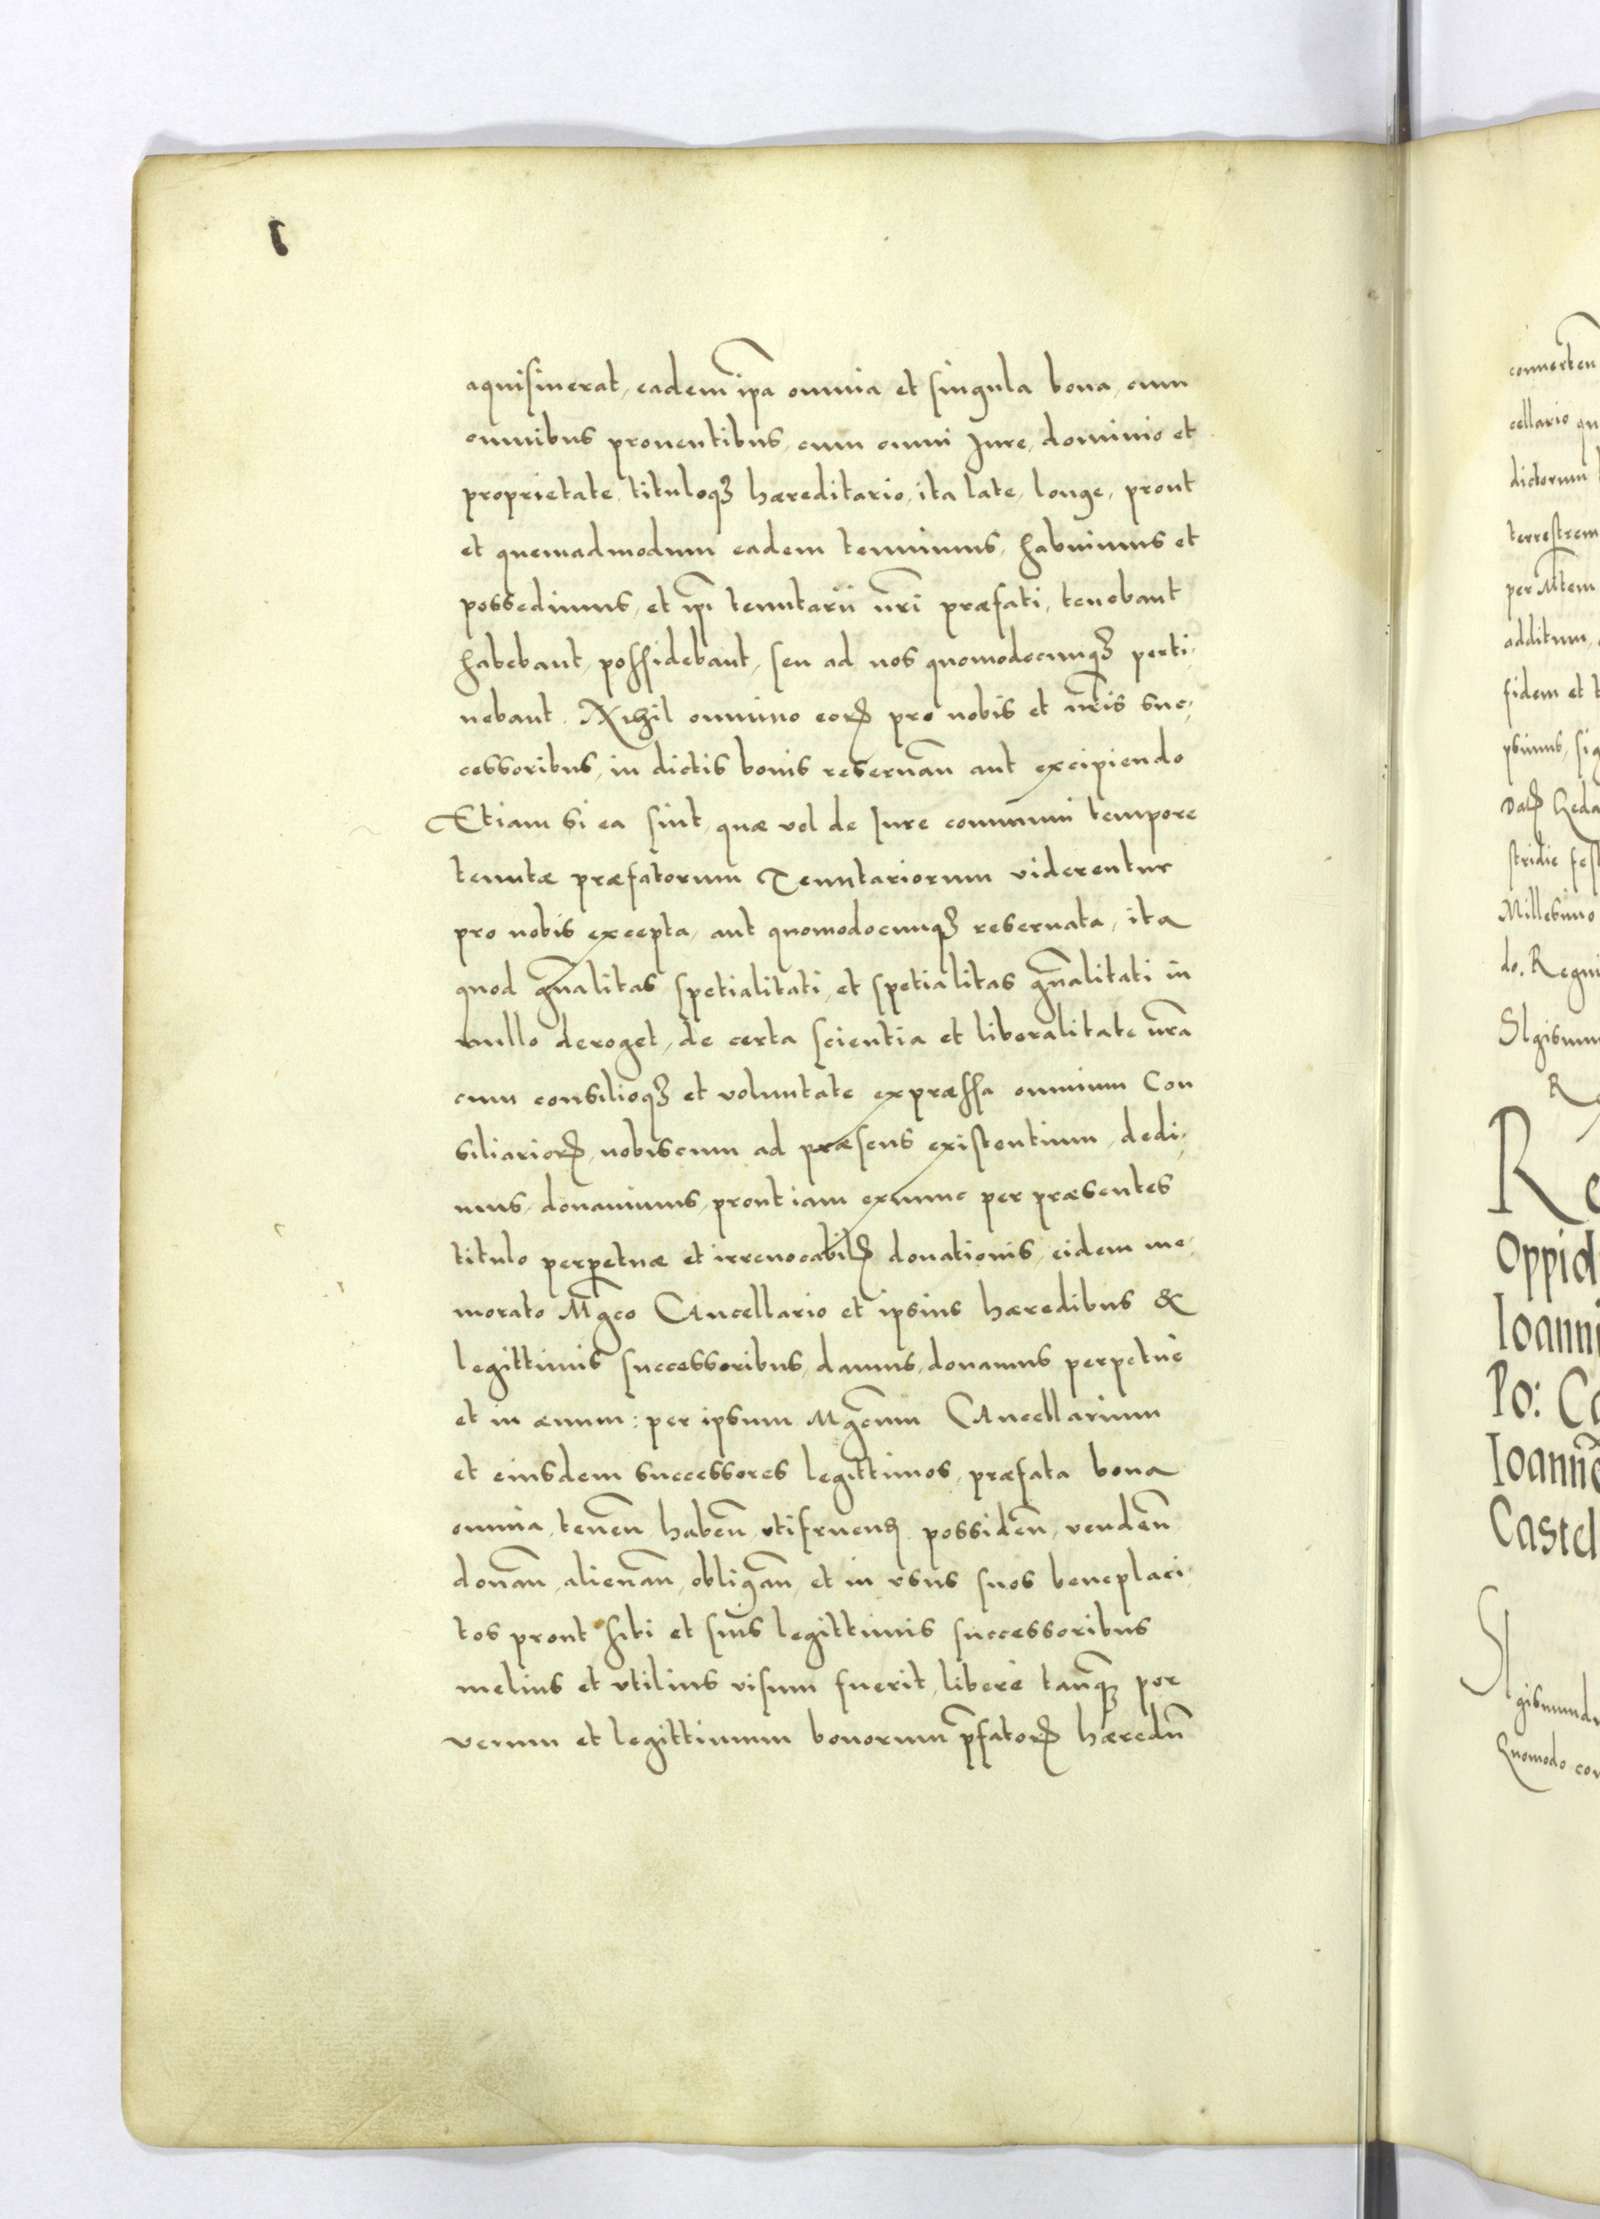 aquisiuerat, eadem ip̃a omnia et singula bona, cum
omnibus prouentibus, cum omni Jure, dominio et
proprietate, tituloqꝫ hæreditario, ita late, longe, prout
et quemadmodum eadem tenuimus, habuimus et
possedimus, et ip̃i tenutarii nr̃i præfati, tenebant
habebant, possidebant, seu ad nos quomodocunqꝫ perti-
nebant. Nihil omnino eorꝝ pro nobis et nr̃is suc-
cessoribus, in dictis bonis reseruañ aut excipiendo
Etiam si ea sint, quæ vel de Jure communi tempore
tenutæ præfatorum Tenutariorum viderentur
pro nobis excepta, aut quomodocunqꝫ reseruata, ita
quod gñalitas spetialitati, et spetialitas gñalitati in
nullo deroget, de certa scientia et liberalitate nr̃a
cum consilioqꝫ et voluntate expræssa omnium Con
siliariorꝝ, nobiscum ad præsens existentium, dedi-
mus, donauimus, prout iam exnunc per præsentes
titulo perpetuæ et irreuocabilꝭ donationis, eidem me-
morato Mg̃co Cancellario et ipsius hæredibus &
legittimis successoribus, damus, donamus perpetuè
et in æuum: per ipsum Mg̃cum Cancellarium
et eiusdem successores legittimos, præfata bona
omnia, teneñ habeñ, vtifruenꝭ possideñ, vendeñ
donañ, alienañ, obligañ, et in vsus suos beneplaci-
tos prout sibi et suis legittimis successoribus
melius et vtilius visum fuerit, liberè tanq̃ per
verum et legittimum bonorum p̃fatorꝝ hæredũ
conuerten
cellario qu
dictorum
terrestrem
additum,
fidem et t
psimus, sig
stridie fes
Millesimo
do. Regni
Sigismun
Re
Oppid
Ioanni
Po: Ca
Castel
Sigismundu
Quomodo con